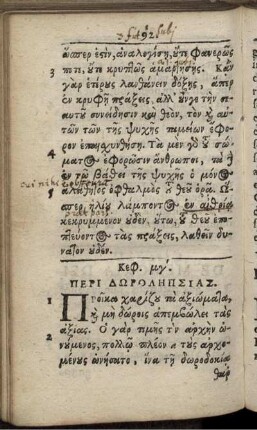 ὥσπερ ἐστὶν, ἀναλογίση, ὅτι φανερῶς
3 ποτε, ὅτε κρυπτῶς ἁμαρτήσῃς. Κἂν
γὰρ ἑτέρους λανθάνειν δόξῃς, ἅπερ
ἂν κρυφῆ πράξεις, ἀλλ' οὔγε τὴν σε-
αυτοῦ συνείδησιν καὶ θεὸν, τὸν καὶ αὐ-
τῶν τῶν τῆς ψυχῆς ταμείων ἔφο-
ρον ἐπαισχυνθήσῃ. Τὰ μὲν γὰρ τοῦ σώ-
ματος ἐφορῶσιν ἄνθρωποι, τὰ δὲ
ἐν τῷ βάθει τῆς ψυχῆς ὁ μόνος
4 ἀλάθητος ὀφθαλμὸς τοῦ θεοῦ ὁρᾷ. Ὥ-
σπερ ἡλίου λάμποντος ἐν αἰθρίᾳ
κεκρυμμένον οὐδὲν, οὕτω τοῦ θεοῦ ἐπο-
πτεύοντος τὰς πράξεις, λαθεῖν δύ-
ναται οὐδέν.
Κεφ. μγʹ.
ΠΕΡΙ ΔΩΡΟΛΗΨΙΑΣ.
1 Προῖκα χαρίζου τὰ ἀξιώματα,
καὶ μὴ δώροις ἀπεμπώλει τὰς
2 ἀξίας. Ὁ γὰρ τιμῆς τὴν ἀρχὴν ὠ-
νούμενος, πολλῷ πλέον καὶ τοὺς ἀρχο-
μένους ὠνήσατο, ἵνα τῇ δωροδοκίᾳ
χαίρ